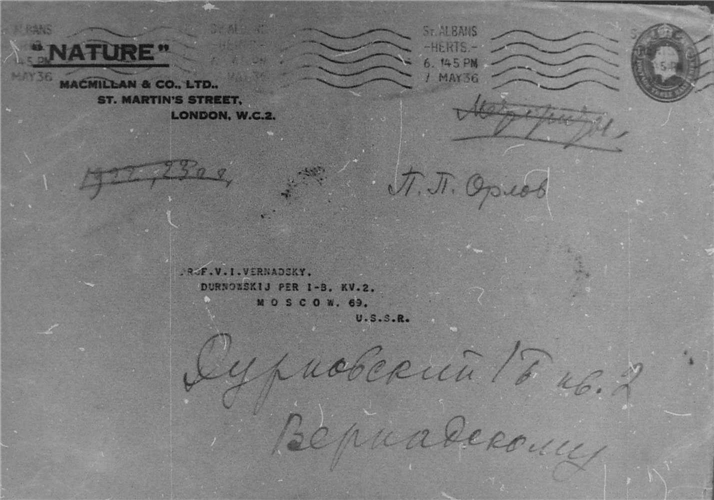 "NATURE"
MACMILLAN & CO., LTD.,
ST. MARTIN'S STREET,
LONDON, W.C.2.
ST ALBANS
-HERTS.-
6.145 PM
7 MAY 36
П. П. Орлов
PROF.V.I.VERNADSKY.
DURNOWSKIJ PER I-B. KV.2.
M O S C O W. 69.
U.S.S.R.
Дурновский 1Б кв. 2
Вернадскому